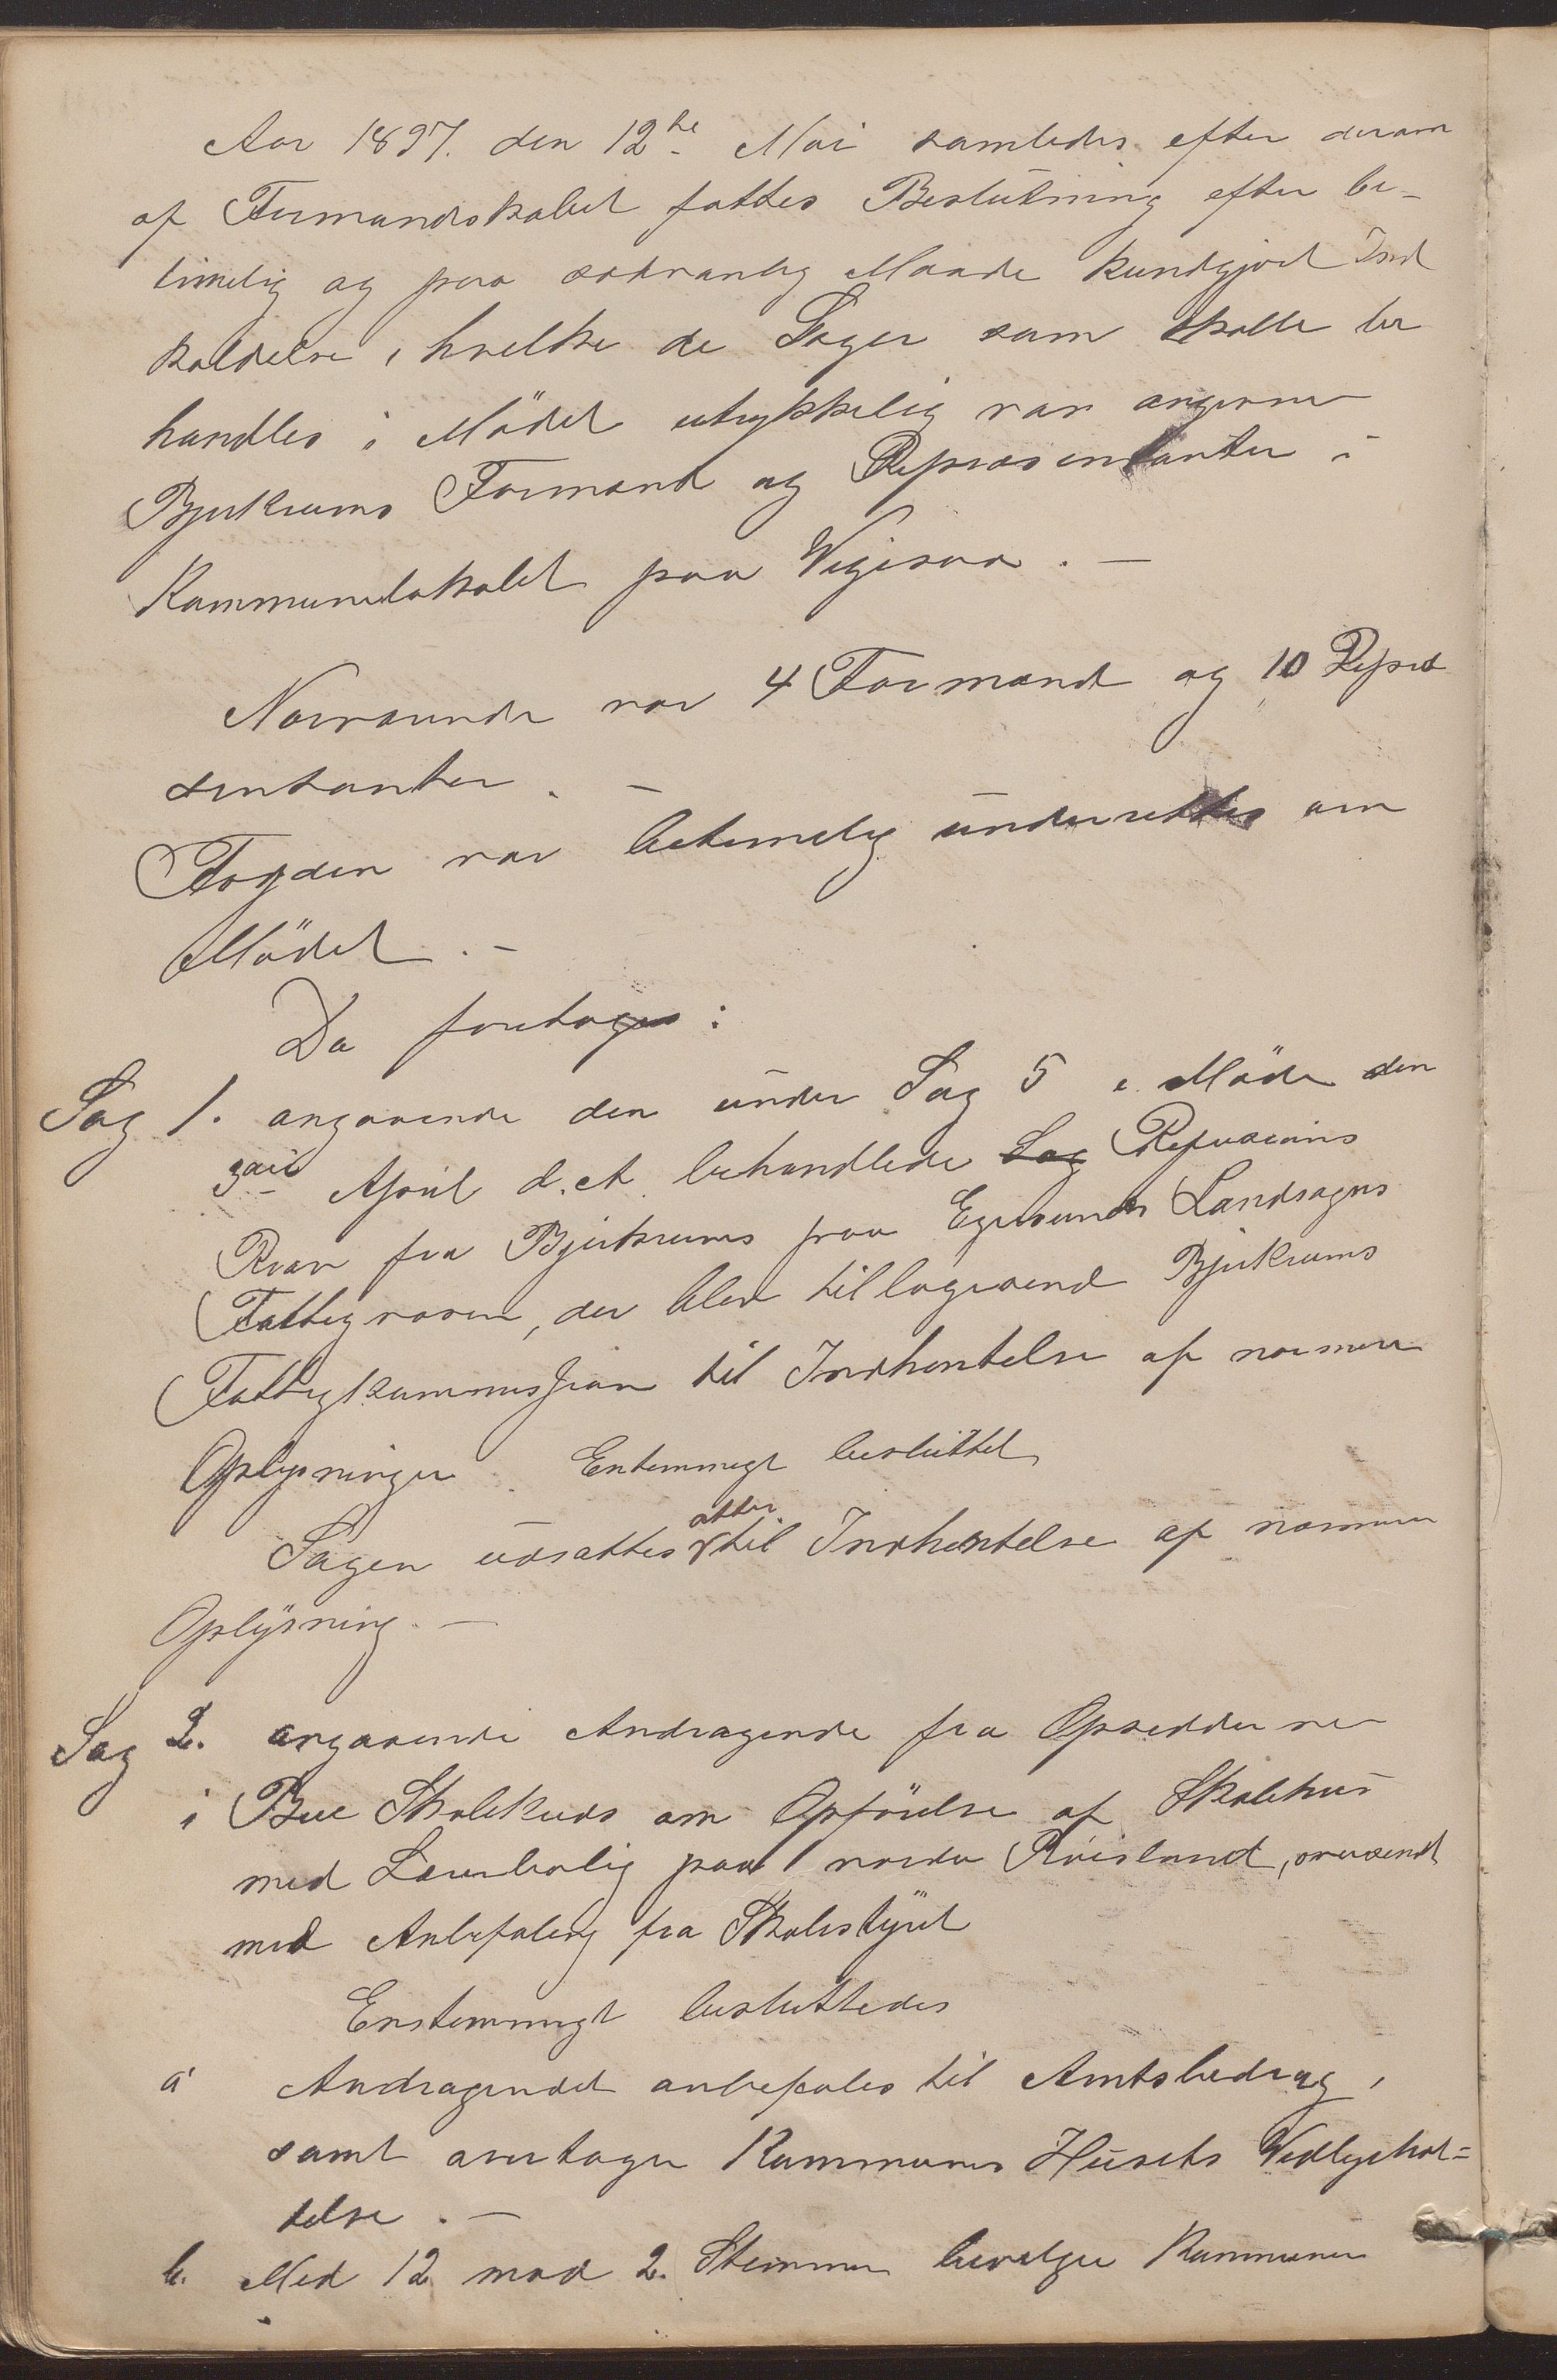 Aar 1897. den 12te Mai samledes efter derom
af Formandskabet fattes Beslutning efter be-
timelig og paa sedvanlig Maade kundgjort Ind
kaldelse, hvilke de Sager som skulle be
handles i Mödet utrykkelig var angivne
Bjerkreims Formænd og Repræsentanter i
Kommunelokalet paa Vigesaa. —
Nærværende var 4 Formænd og 10 Repræ
sentanter. —
Fogden var betimelig underrettes om
Mödet. —
Da foretoges:
Sag 1. angaaende den under Sag 5 i Möde den
3die April d. A. behandlede Sag Refusions
Krav fra Bjerkreims paa Egersunds Landsogns
Fattigvæsen, der blev tilbagesend Bjerkreims
Fattigkommission til Indhentelse af nærmere
Oplysninger. Enstemmigt besluttet
Sagen udsattes atter til Indhentelse af nærmere
Oplysning. —
Sag 2. angaaende Andragende fra Opsidderne
i Bue Skolekreds om Opförelse af Skolehus
med Lærerbolig paa nordre Röisland, oversendt
med Anbefaling fra Skolestyret
Enstemmigt besluttedes
a Andragendet anbefales til Amtsbedrag,
samt overtager Kommunen Husets Vedligehol=
delse. —
b. Med 12 mod 2. Stemmer bevilger Kommunen